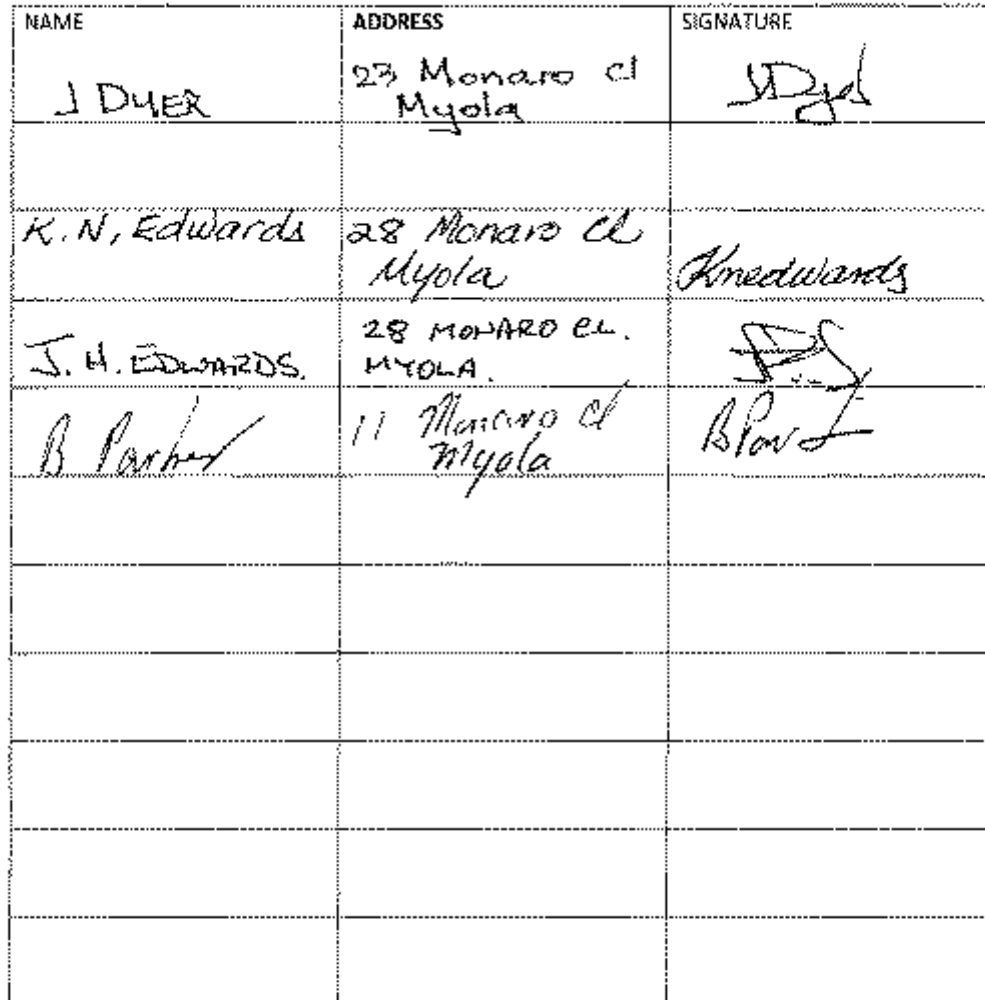 NAME ADDRESS SIGNATURE
J DYER 23 Monaro Cl
Myola
K. N, Edwards 28 Monaro Cl
Myola Knedwards
J. H. EDWARDS. 28 MONARO CL.
MYOLA.
B Parker 11 Monaro Cl
Myola